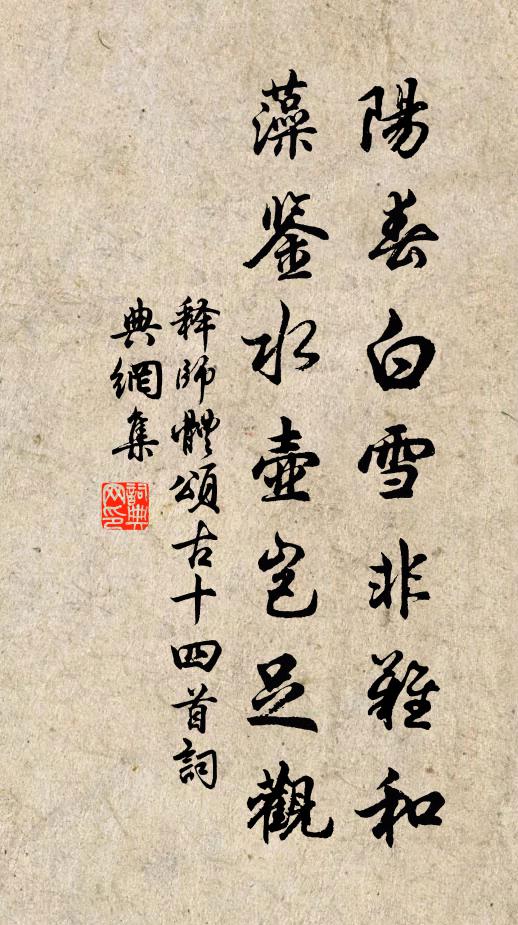 陽春白雪非難和
藻鉴水壺岂足觀
释師體頌古十四首詞
典網集
詞典
网印